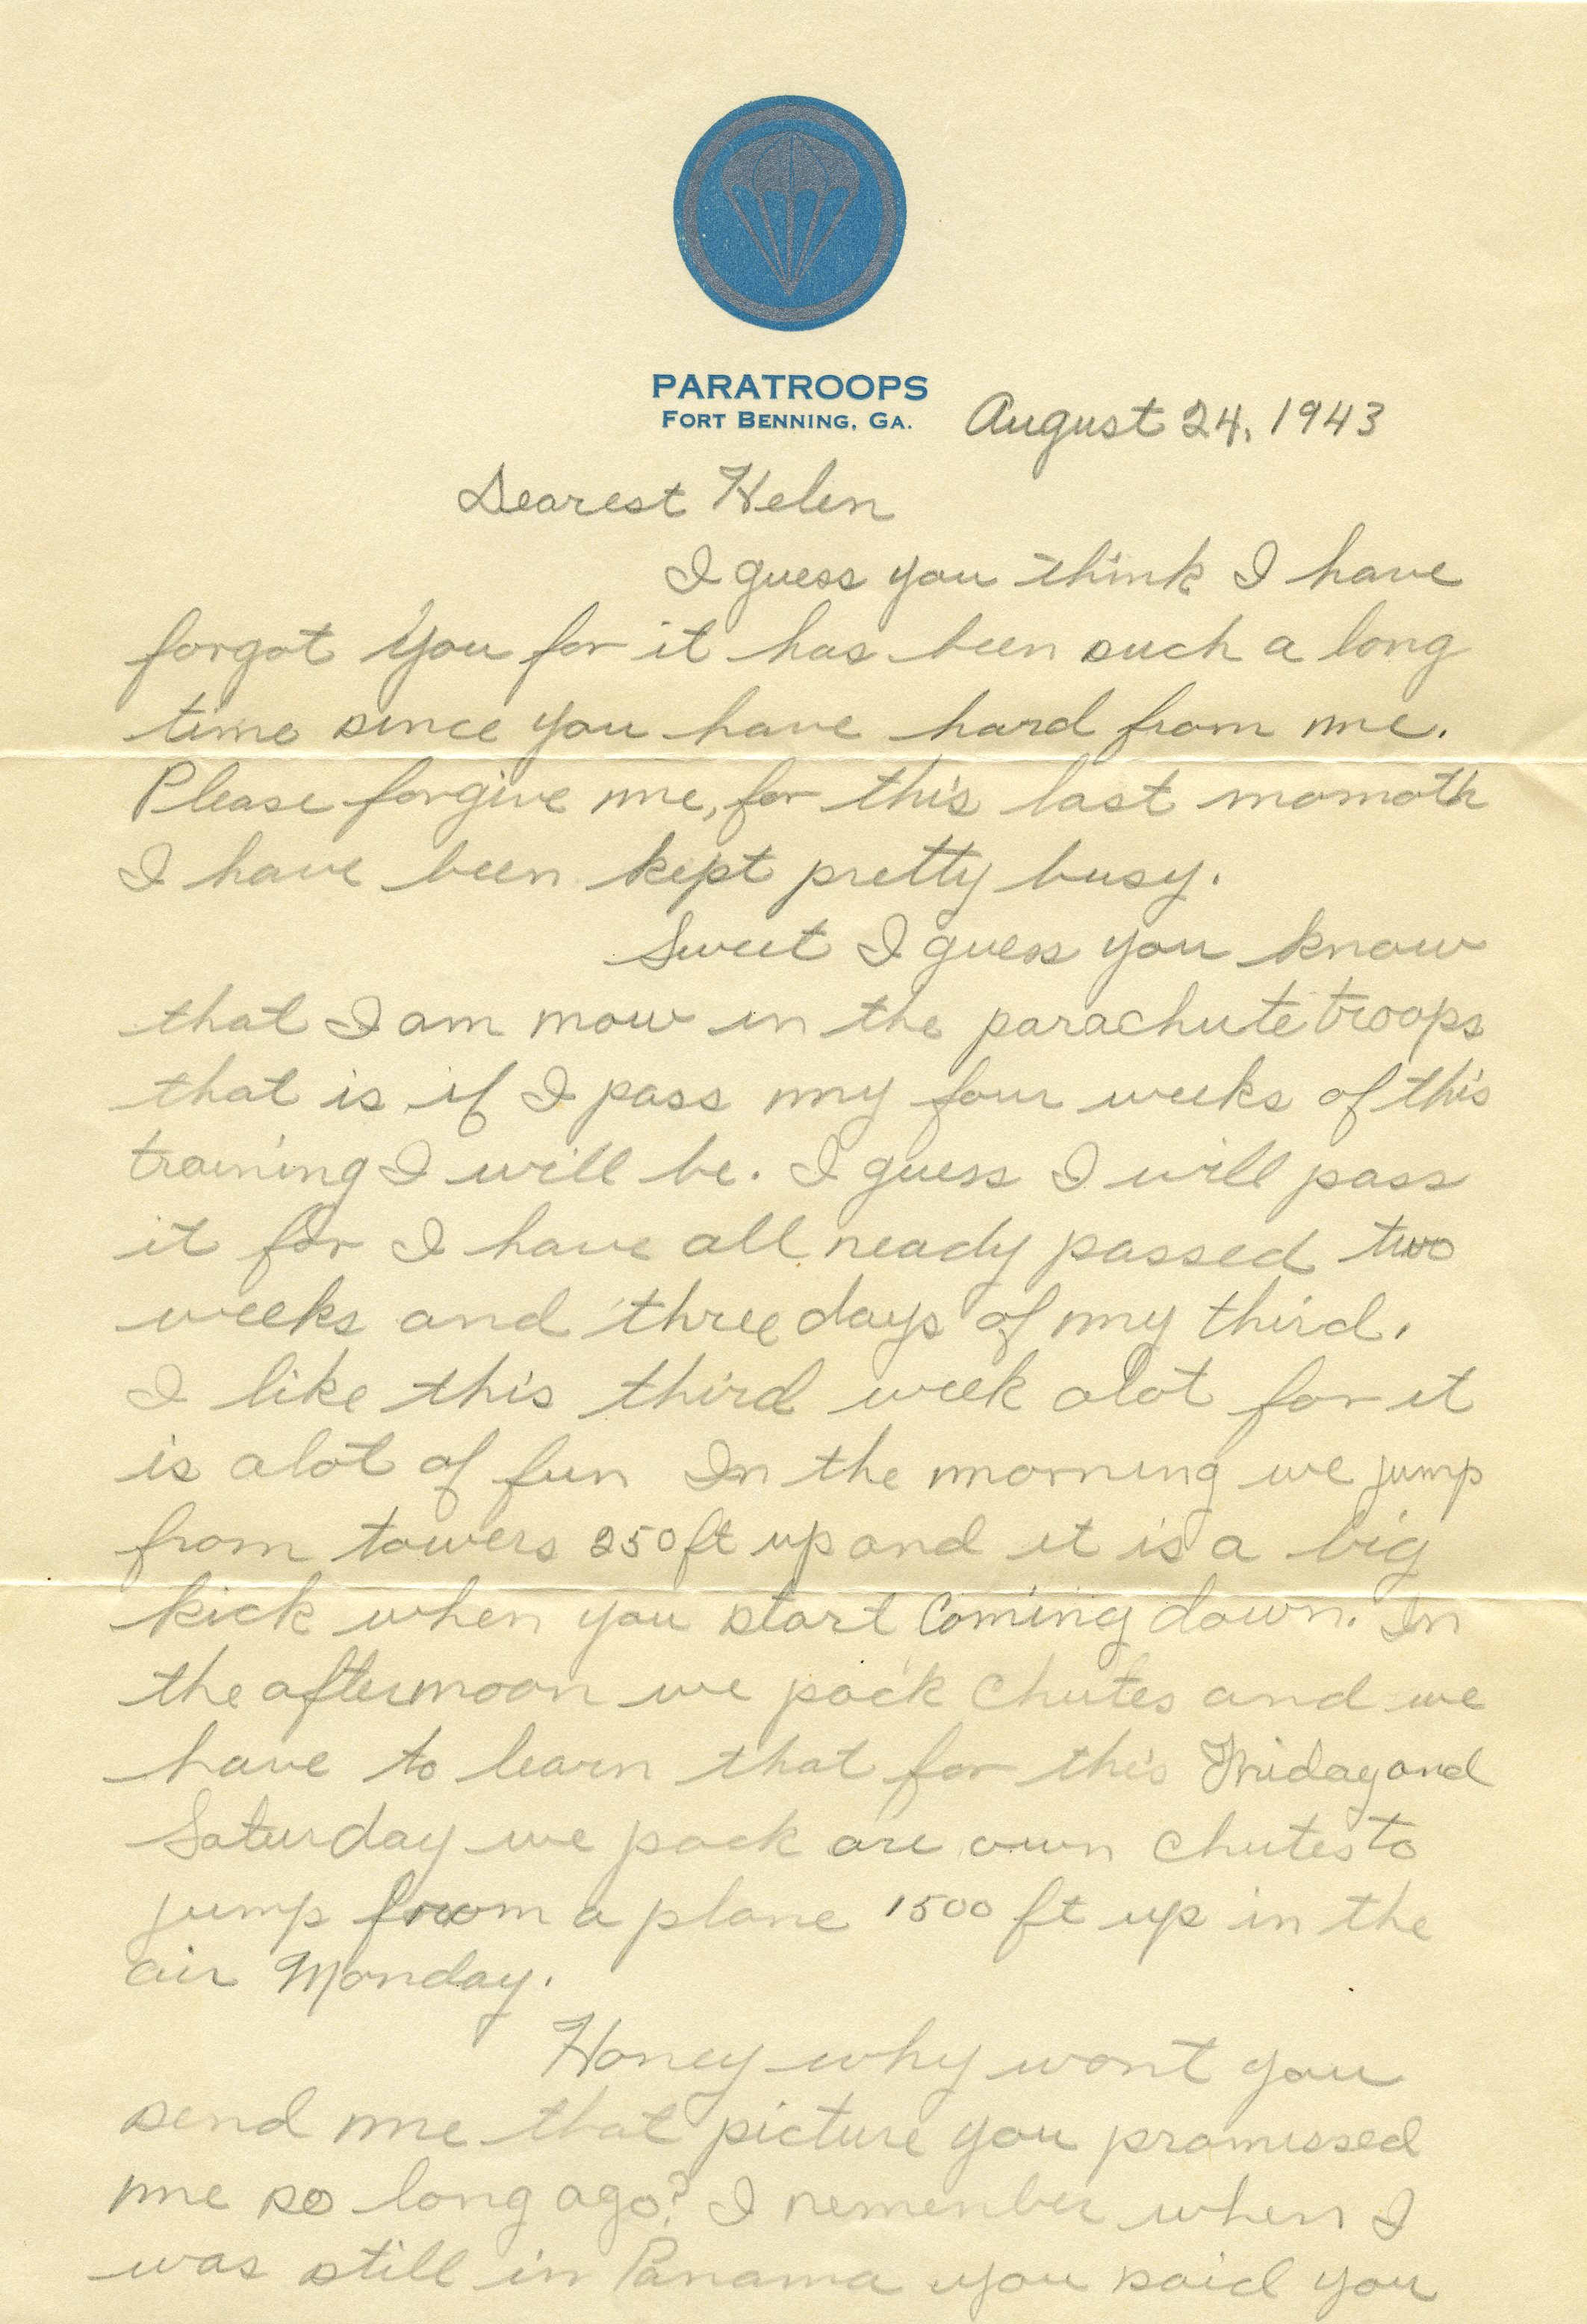 PARATROOPS
FORT BENNING, GA.
August 24, 1943
Dearest Helen
I guess you think I have
forgot you for it has been such a long
time since you have hard from me.
Please forgive me, for this last momoth
I have been kept pretty busy.
Sweet I guess you know
that I am mow in the parachute troops
that is if I pass my four weeks of this
training I will be. I guess I will pass
it for I have all ready passed two
weeks and three days of my third.
I like this third week alot for it
is alot of fun In the morning we jump
from towers 250 ft up and it is a big
kick when you start coming down. In
the aftermoon we pack chutes and we
have to learn that for this Friday and
Saturday we pack are own chutes to
jump from a plane 1500 ft up in the
air Monday.
Honey why wont you
send me that picture you promissed
me so long ago? I remenber when I
was still in Panama you said you